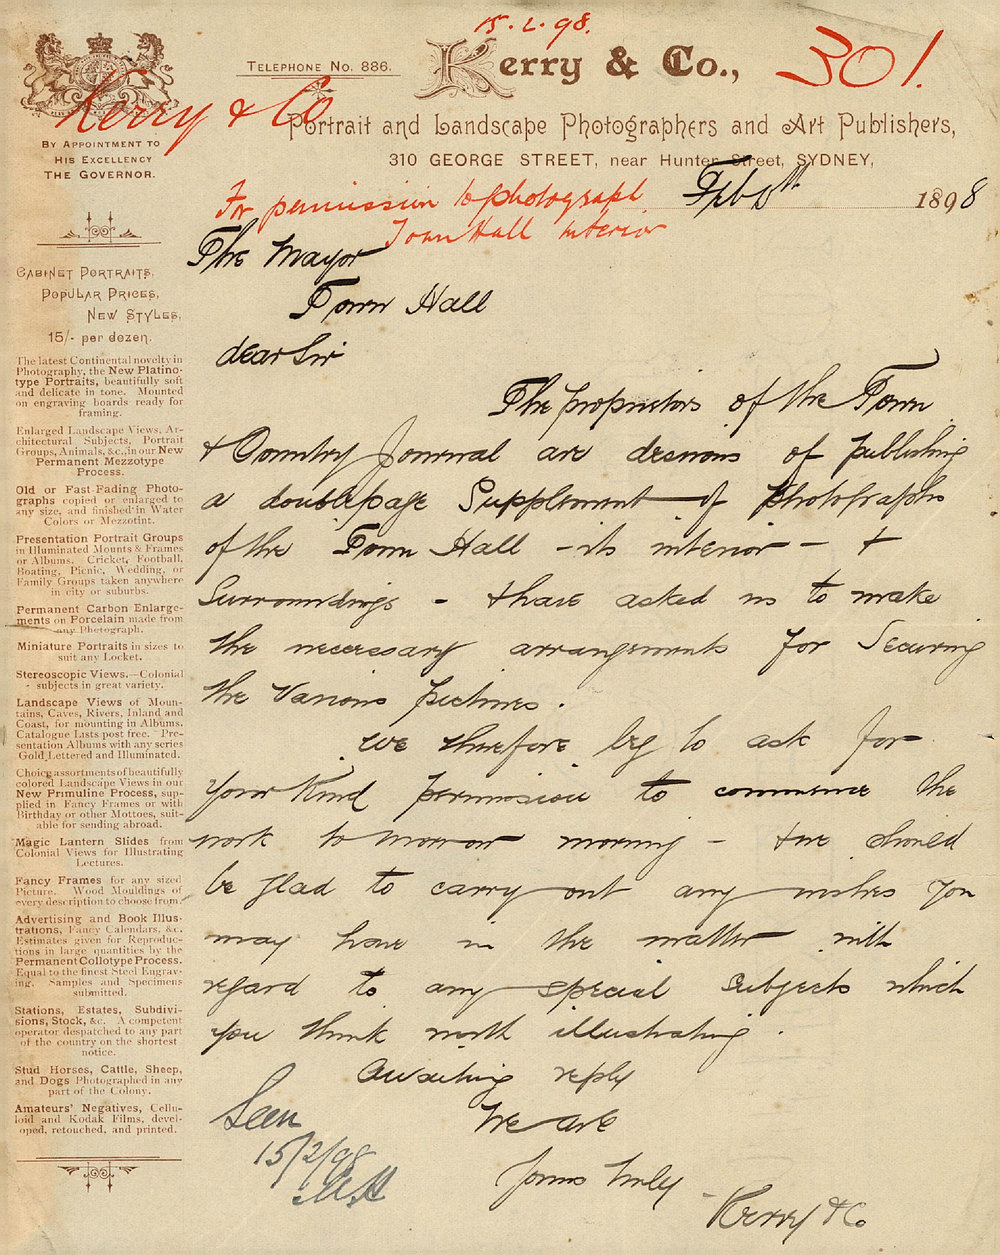 15.2.98.
Kerry & Co.,
301.
TELEPHONE No. 886.
Kerry & Co
Portrait and Landscape Photographers and Art Publishers,
310 GEORGE STREET, near Hunter Street, SYDNEY,
BY APPOINTMENT TO
HIS EXCELLENCY
THE GOVERNOR.
For permission to photograph
Town Hall interior
Feb 1898
CABINET PORTRAITS,
POPULAR PRICES,
NEW STYLES,
15/- per dozen.
The latest Continental novelty in
Photography, the New Platino-
type Portraits, beautifully soft
and delicate in tone. Mounted
on engraving boards ready for
framing.
Enlarged Landscape Views, Ar-
chitectural Subjects, Portrait
Groups, Animals, &c., in our New
Permanent Mezzotype
Process.
Old or Fast-Fading Photo-
graphs copied or enlarged to
any size, and finished in Water
Colors or Mezzotint.
Presentation Portrait Groups
in Illuminated Mounts & Frames
or Albums. Cricket, Football,
Boating, Picnic, Wedding, or
Family Groups taken anywhere
in city or suburbs.
Permanent Carbon Enlarge-
ments on Porcelain made from
any Photograph.
Miniature Portraits in sizes to
suit any Locket.
Stereoscopic Views.—Colonial
subjects in great variety.
Landscape Views of Moun-
tains, Caves, Rivers, Inland and
Coast, for mounting in Albums.
Catalogue Lists post free. Pre-
sentation Albums with any series
Gold Lettered and Illuminated.
Choice assortments of beautifully
colored Landscape Views in our
New Primuline Process, sup-
plied in Fancy Frames or with
Birthday or other Mottoes, suit-
able for sending abroad.
Magic Lantern Slides from
Colonial Views for Illustrating
Lectures.
Fancy Frames for any sized
Picture. Wood Mouldings of
every description to choose from.
Advertising and Book Illus-
trations, Fancy Calendars, &c.
Estimates given for Reproduc-
tions in large quantities by the
Permanent Collotype Process.
Equal to the finest Steel Engrav-
ing. Samples and Specimens
submitted.
Stations, Estates, Subdivi-
sions, Stock, &c. A competent
operator despatched to any part
of the country on the shortest
notice.
Stud Horses, Cattle, Sheep,
and Dogs Photographed in any
part of the Colony.
Amateurs' Negatives, Cellu-
loid and Kodak Films, devel-
oped, retouched, and printed.
The Mayor
Town Hall
dear Sir
The proprietors of the Town
& Country Journal are desirous of publishing
a double page Supplement of photographs
of the Town Hall - its interior - &
Surroundings - & have asked us to make
the necessary arrangements for Securing
the Various pictures.
We therefore beg to ask for
your Kind permission to commence the
work to morrow morning - & we should
be glad to carry out any wishes you
may have in the matter with
regard to any special subjects which
you think worth illustrating.
Awaiting reply
We are
Yours truly
Kerry & Co
Seen
15/2/98